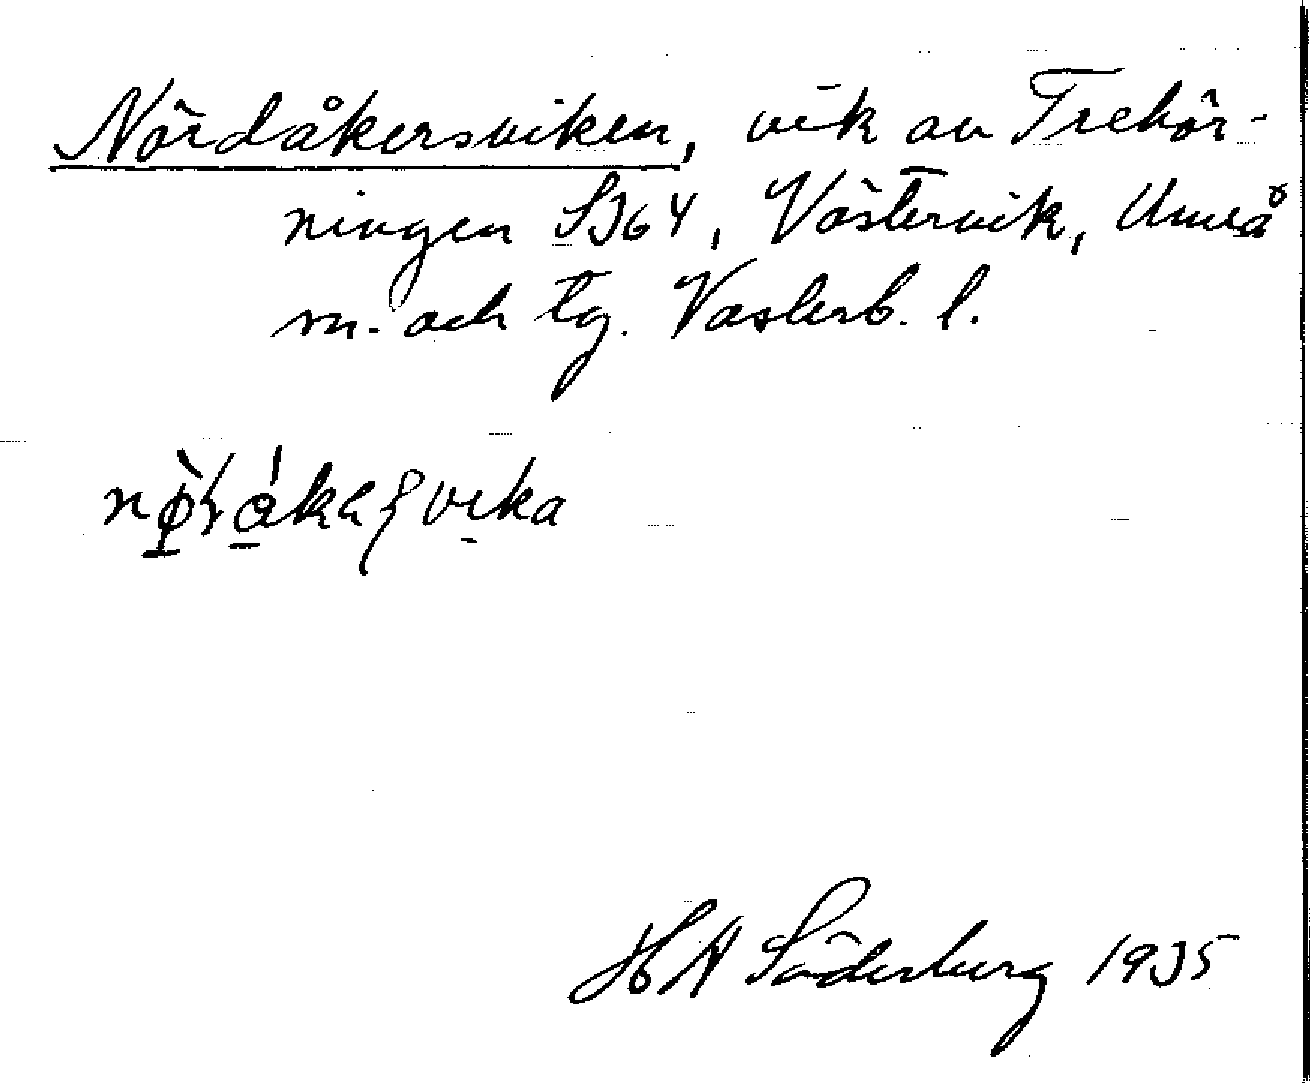 Nördåkersviken, vik av Trehör-
ningen SJ64, Västervik, Umeå
sn. och tg. Västerb. l.
H A Söderberg 1935